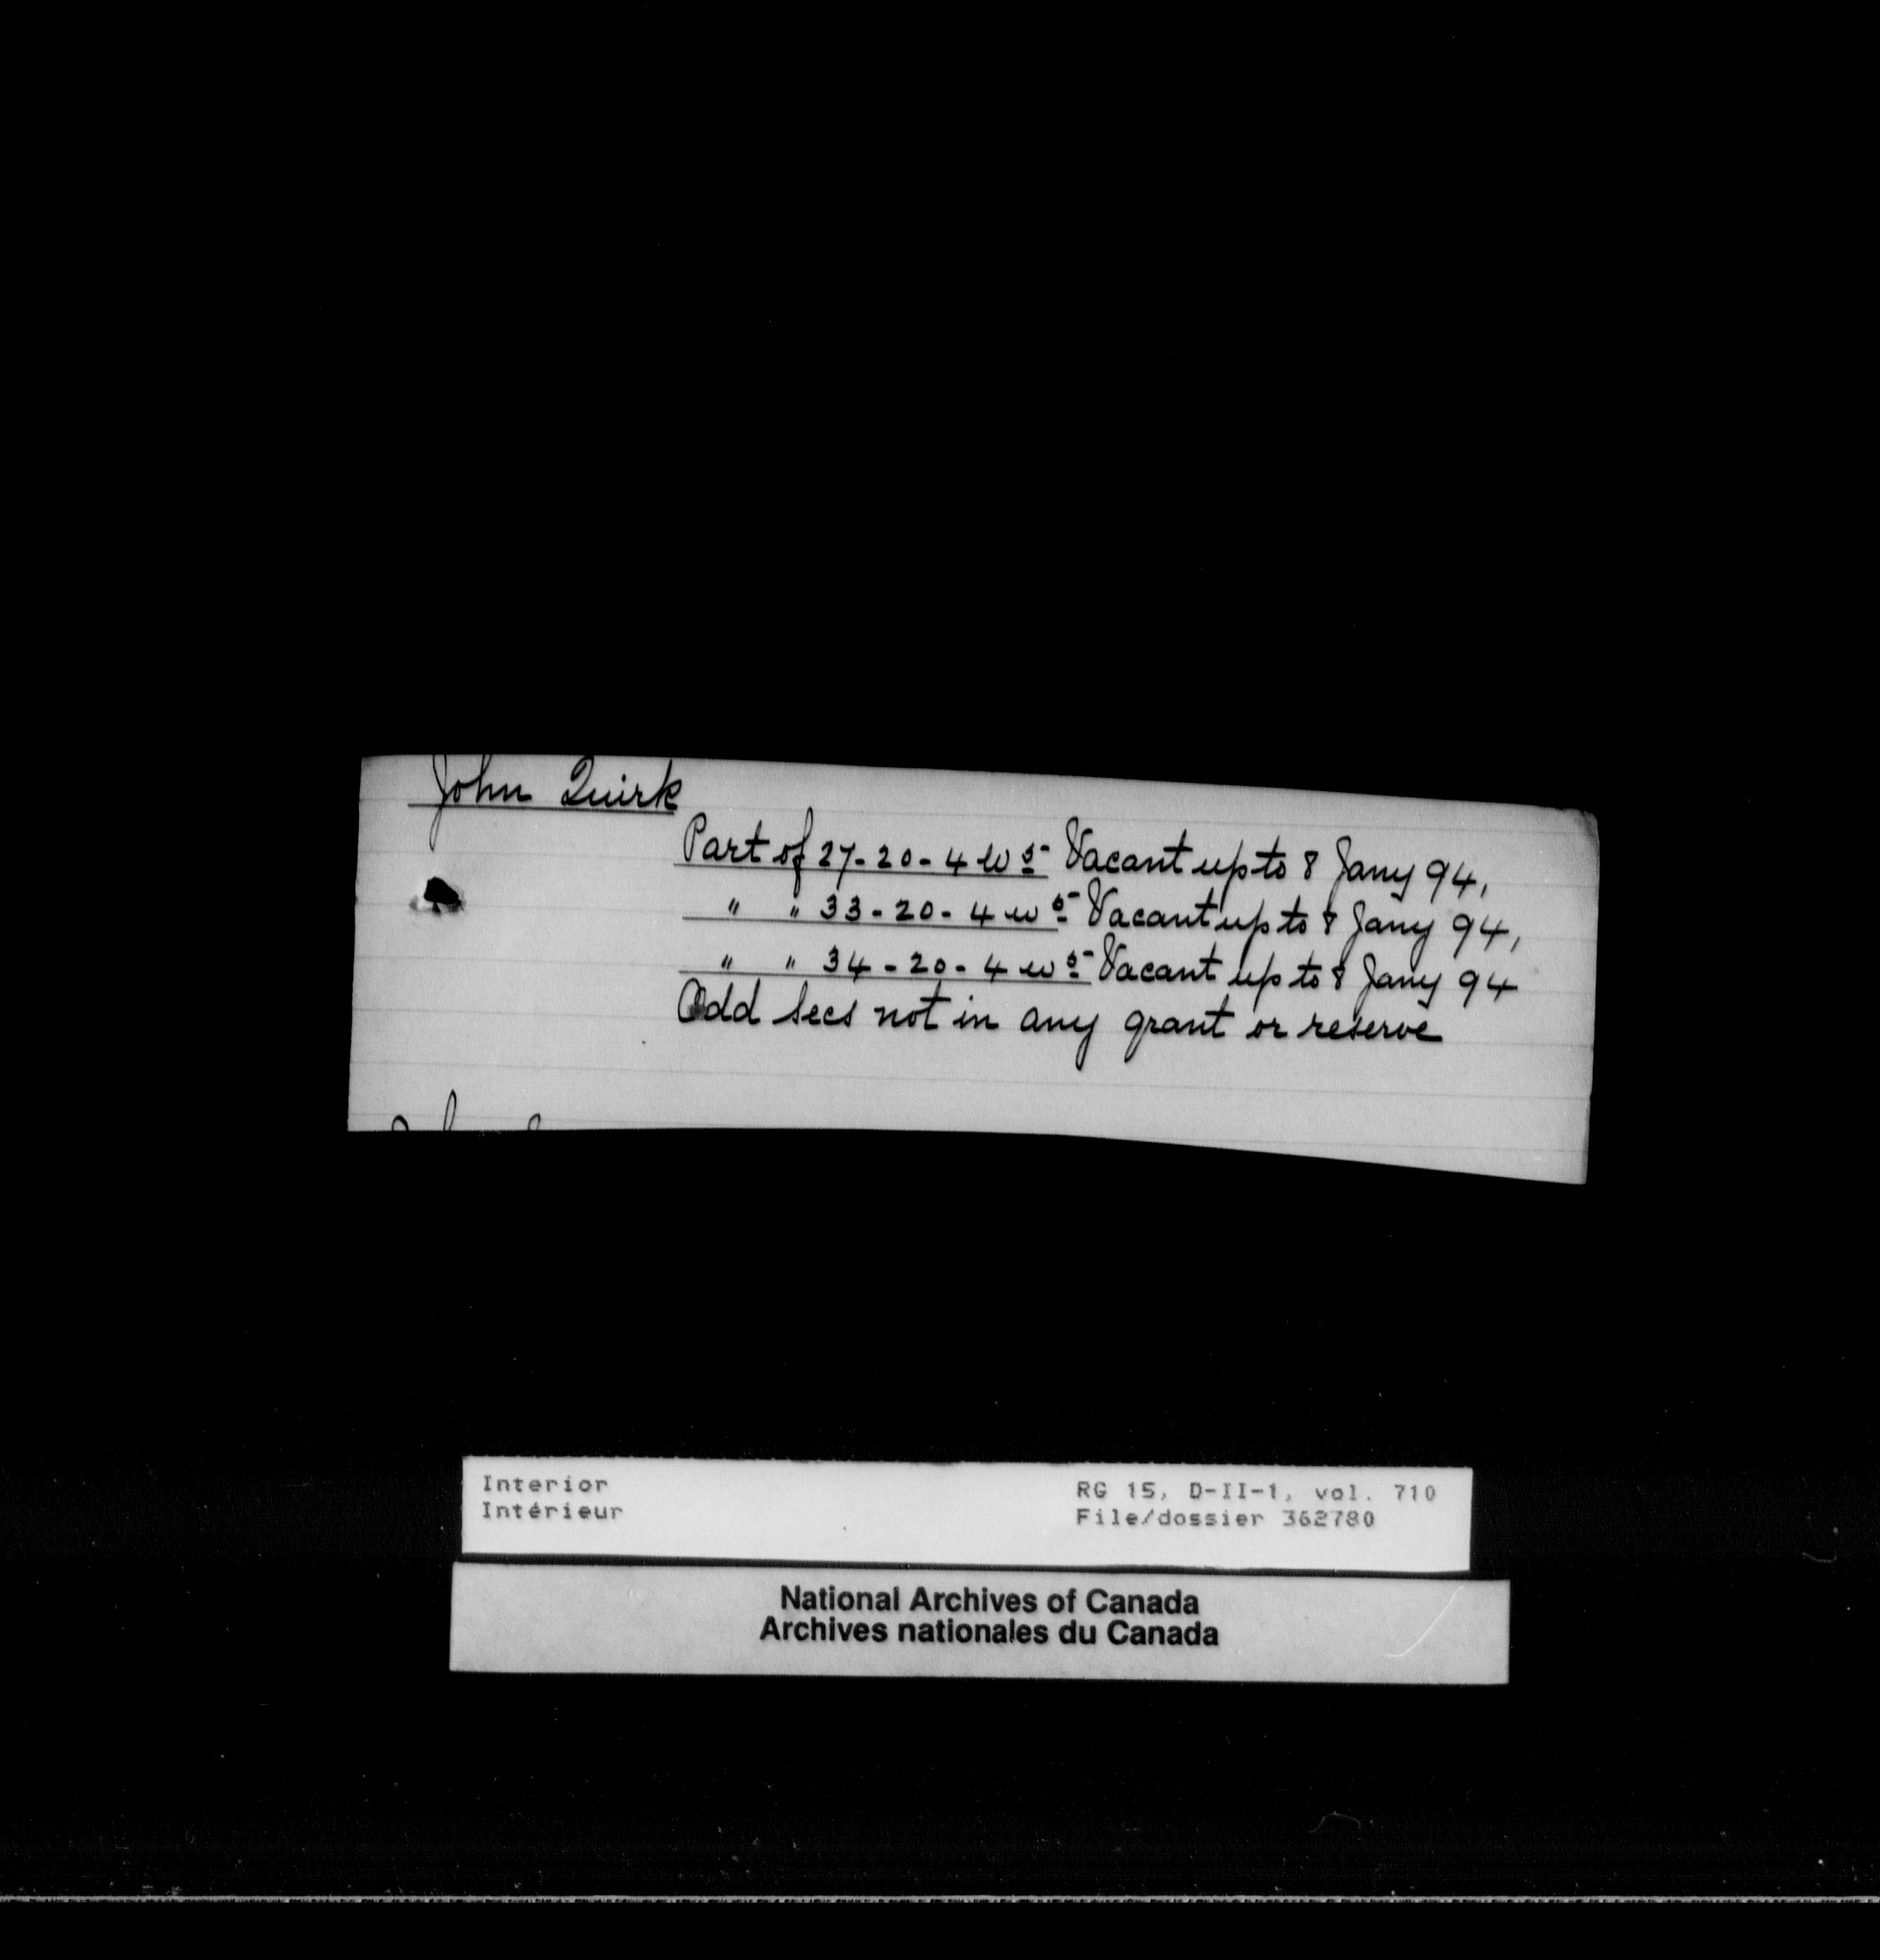 John Quirk
Part of 27-20-4 W 5- Vacant up to 8 Jany 94,
" " 33-20-4 w 5- Vacant up to 8 Jany 94,
" " 34-20-4 w 5- Vacant up to 8 Jany 94
Odd secs not in any grant or reserve
Interior
Intérieur
RG 15, D-II-1, vol. 710
File/dossier 362780
National Archives of Canada
Archives nationales du Canada